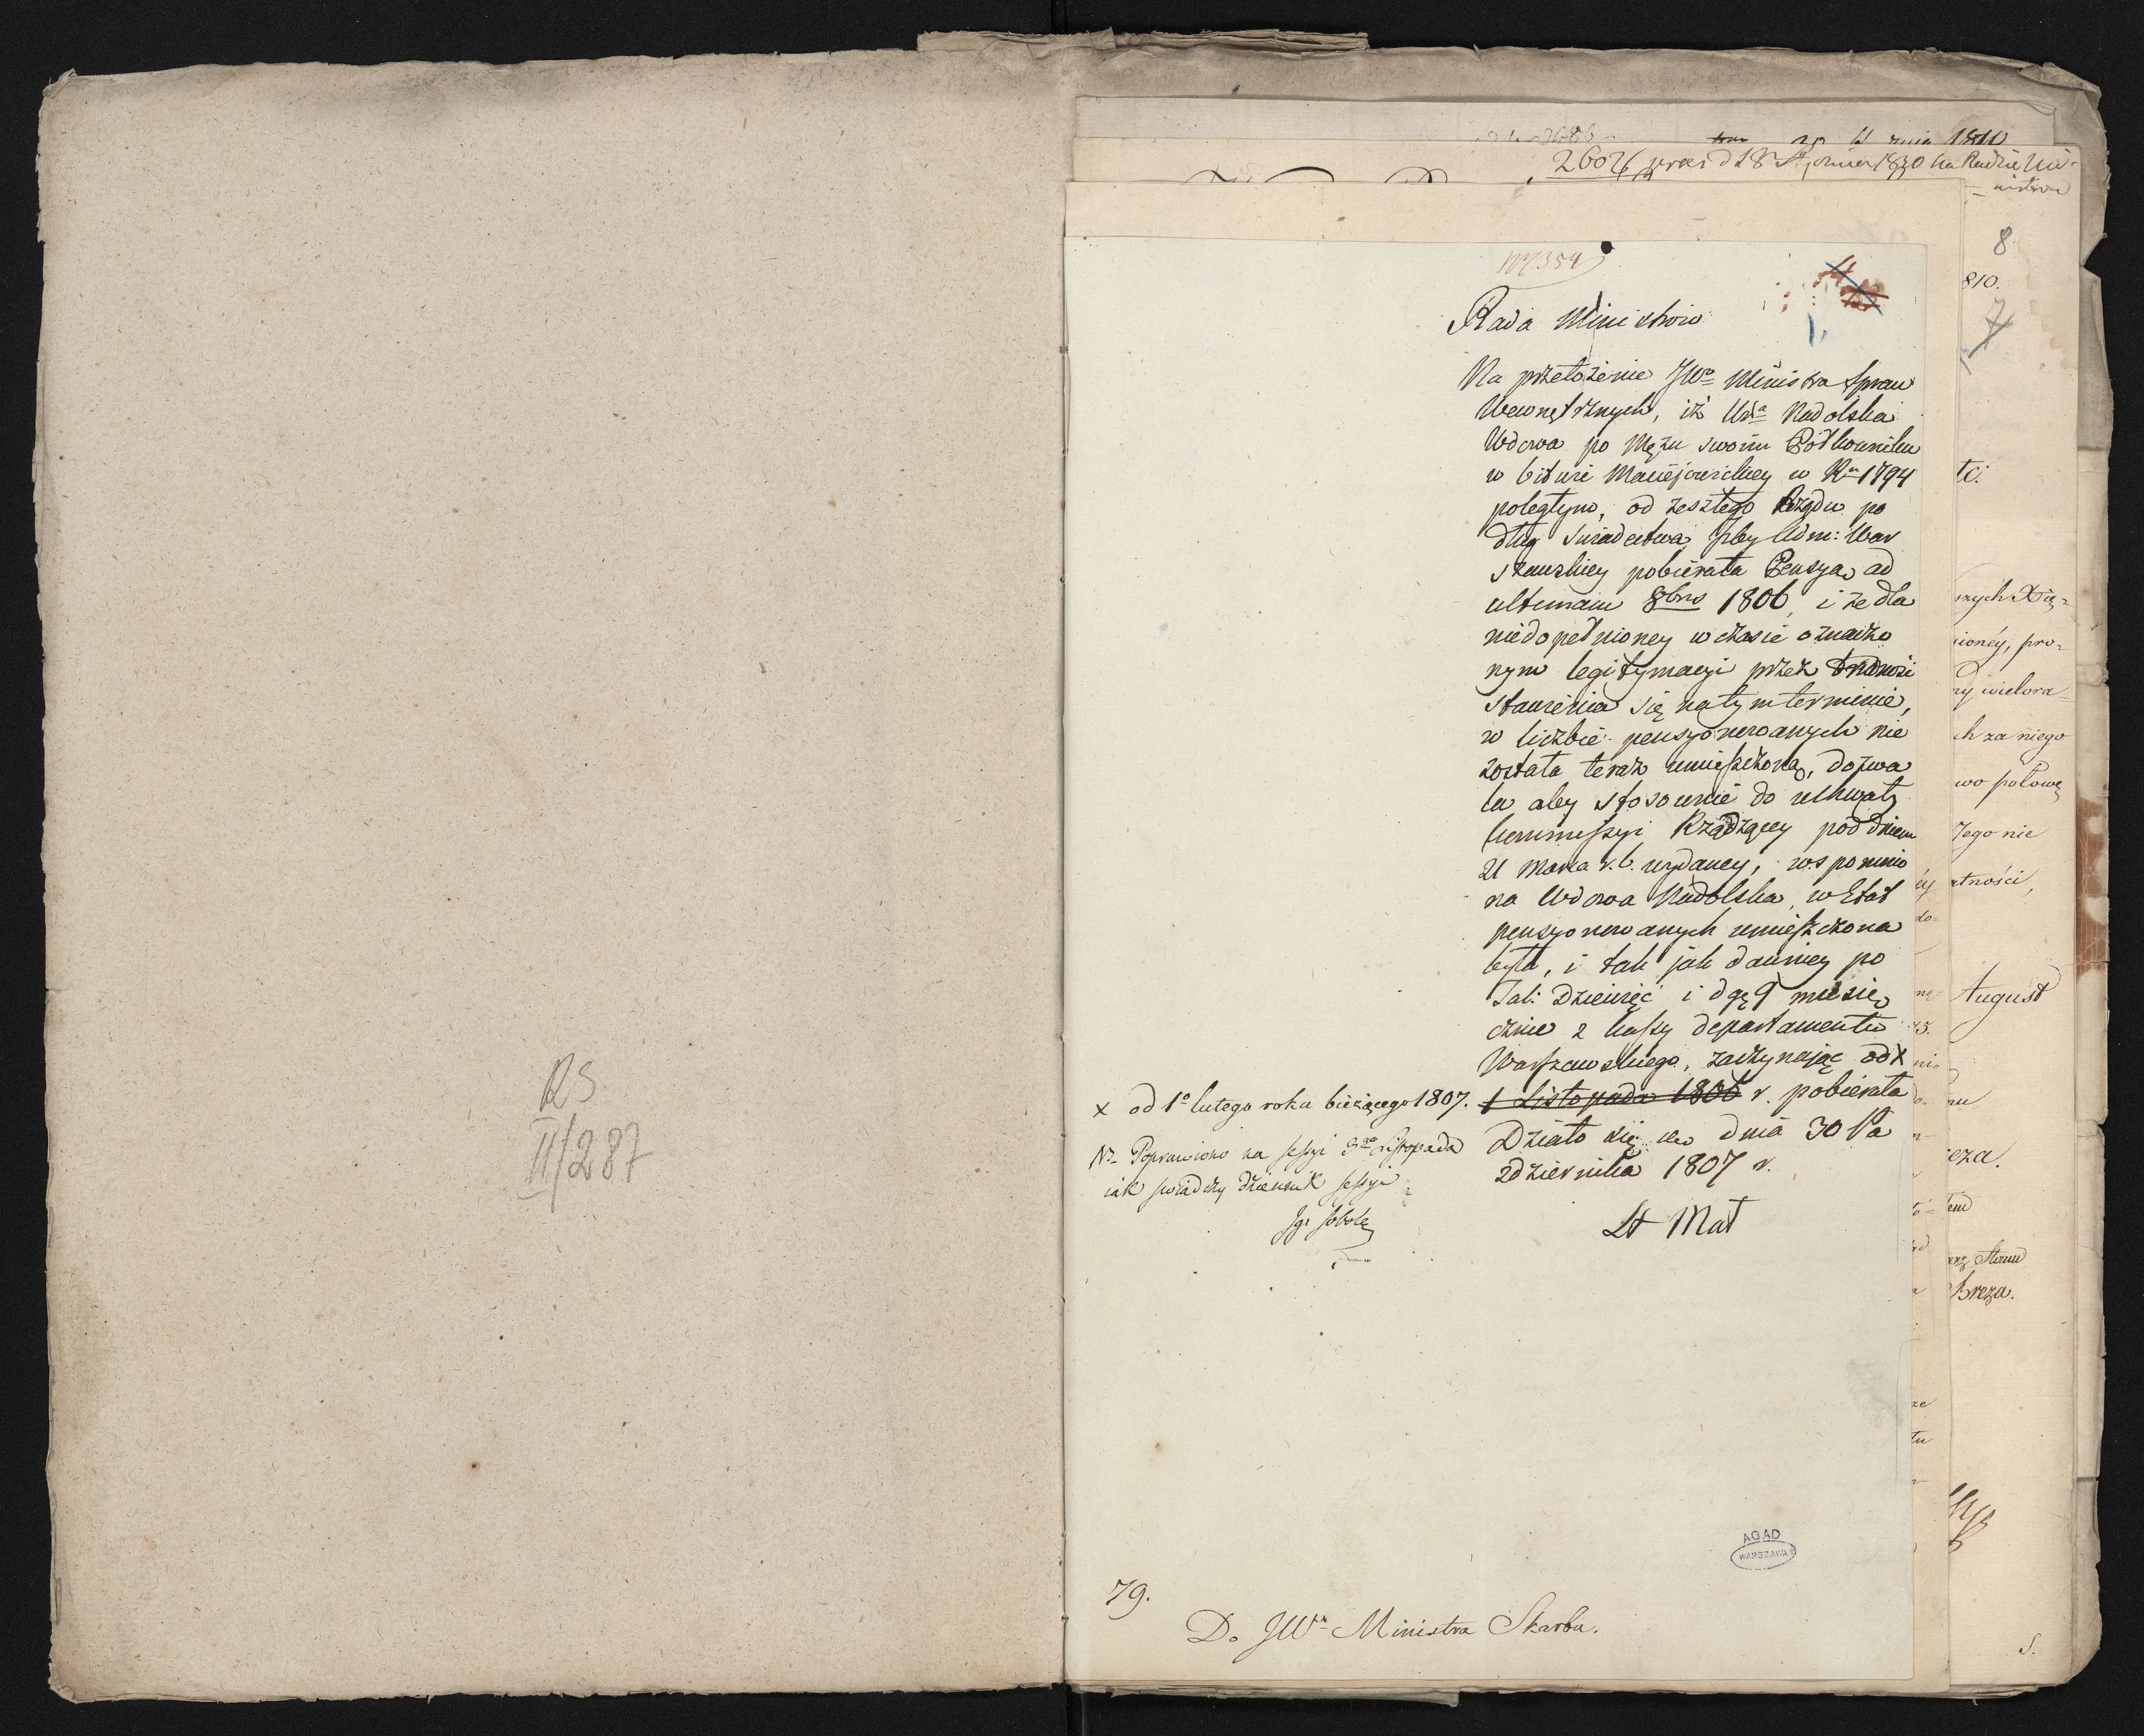 RS
II/287
N 354
Rada Ministrow
Na przełożenie JWo Ministra Spraw
Wewnętrznych, iż Ur:a Nadolska
Wdowa po Mężu swoim Półkowniku
w bitwie Macieiowickiey w Ru 1794
poległym, od zeszłego Rządu po
dług świadectwa Izby Adm: War
szawskiey pobierała Pensyą ad
ultimam 8bris 1806, i że dla
niedopełnioney w czasie oznaczo
nym legitymacyi przez trudnosi
stawienia się na tym terminie,
w liczbie pensyonowanych nie
została teraz umieszczoną, dozwa
la aby stosownie do uchwały
Kommissyi Rządzącey pod dniem
21 Marca r. b. wydaney, wspomnio
na Wdowa Nadolska, w Etat
pensyonowanych umieszczona
była, i tak jak dawniey po
Tal: Dziewięć i dgę 9 miesię
cznie z kassy departamentu
Warszawskiego, zaczynając od x
1 Listopada 1806 r. pobierała
x od 1o lutego roku bieżącego 1807.
Działo się dnia 30 Pa
zdziernika 1807 r.
Poprawiono na sessyi 3go Listopada
iak swiadczy dziennik sessyi
Sobole
St Mał
79.
Do JWo Ministra Skarbu.
AGAD
WARSZAWA
1810
2602
8
810.
7
tci.
szych Xię=
ioney, pro=
ny wielora=
ch za niego
wo połowę
Tego nie
atności,
August
nu
eza.
Breza.
S.